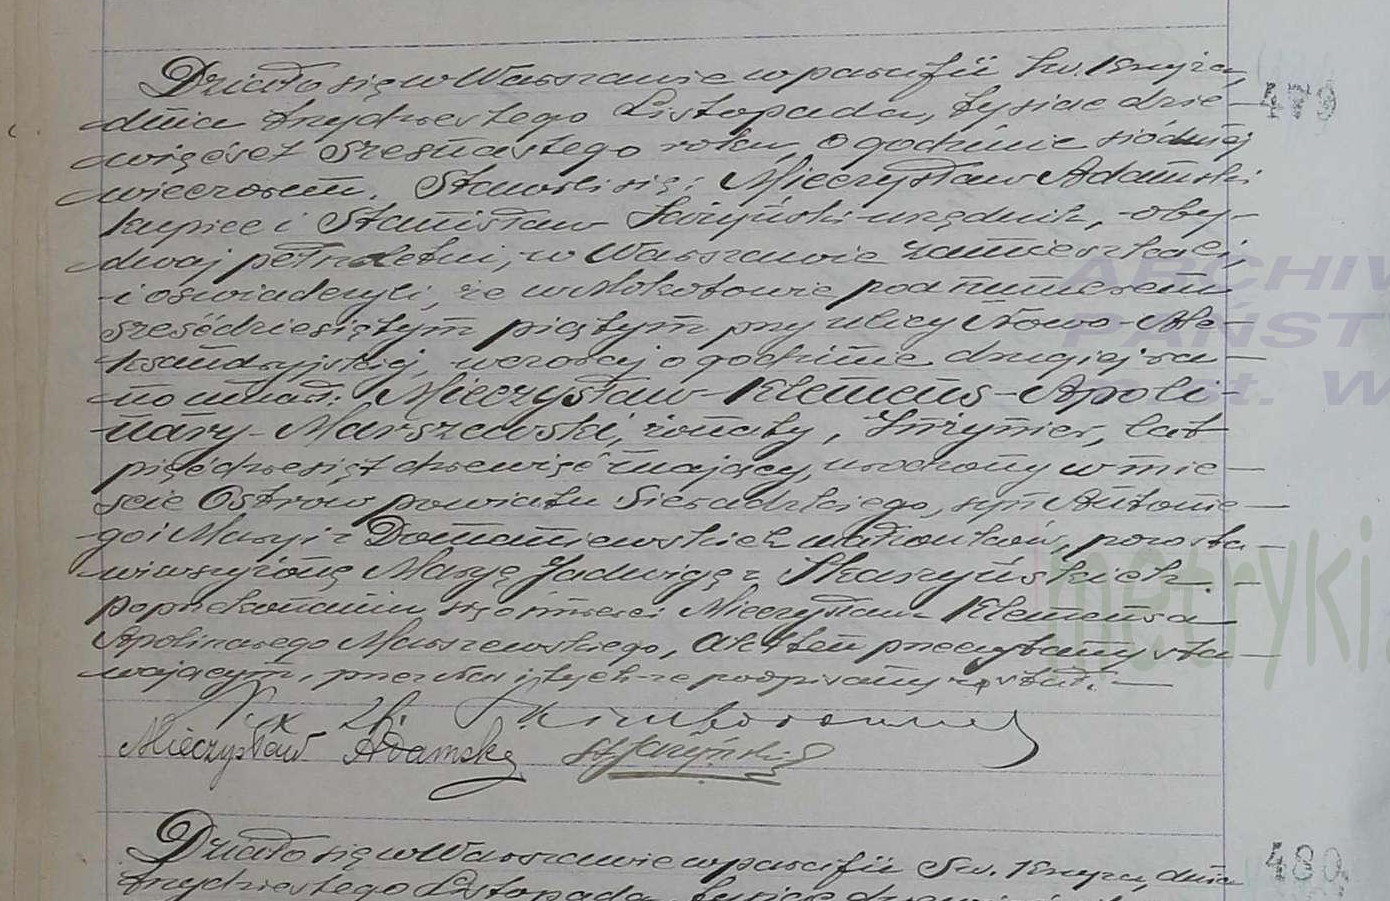 Działo się w Warszawie w parafii Św. Krzyża,
479
dnia trzydziestego Listopada, tysiąc dzie-
więćset szesnastego roku, o godzinie siódmej
wieczorem. Stawili się: Mieczysław Adamski
kupiec i Stanisław Jarzyński urzędnik, oby-
dwaj pełnoletni, w Warszawie zamieszkali,
i oświadczyli, że w Mokotowie pod numerem
sześćdziesiątym piątym przy ulicy Nowo-Ale-
ksandryjskiej, wczoraj o godzinie drugiej ra-
no umarł. Mieczysław-Klemens-Apoli-
nary-Marszewski, żonaty, Inżynier, lat
pięćdziesiąt dziewięć mający, urodzony w mie-
ście Ostrów powiatu Sieradzkiego, syn Antonie-
go i Maryi z Domaniewskich małżonków, pozosta-
wiwszy żonę Maryę Jadwigę z Skarzyńskich.
Po przekonaniu się o śmierci Mieczysława Klemensa
Apolinarego Marszewskiego, Akt ten przeczytany sta-
wającym, przez Nas i tychże podpisany został.
X
Mieczysław Adamski St Jarzyński
Działo się w Warszawie w parafii Św. Krzyża, dnia
480
trzydziestego Listopada, tysiąc
ARCHIW
PAŃST
st. W
metryki